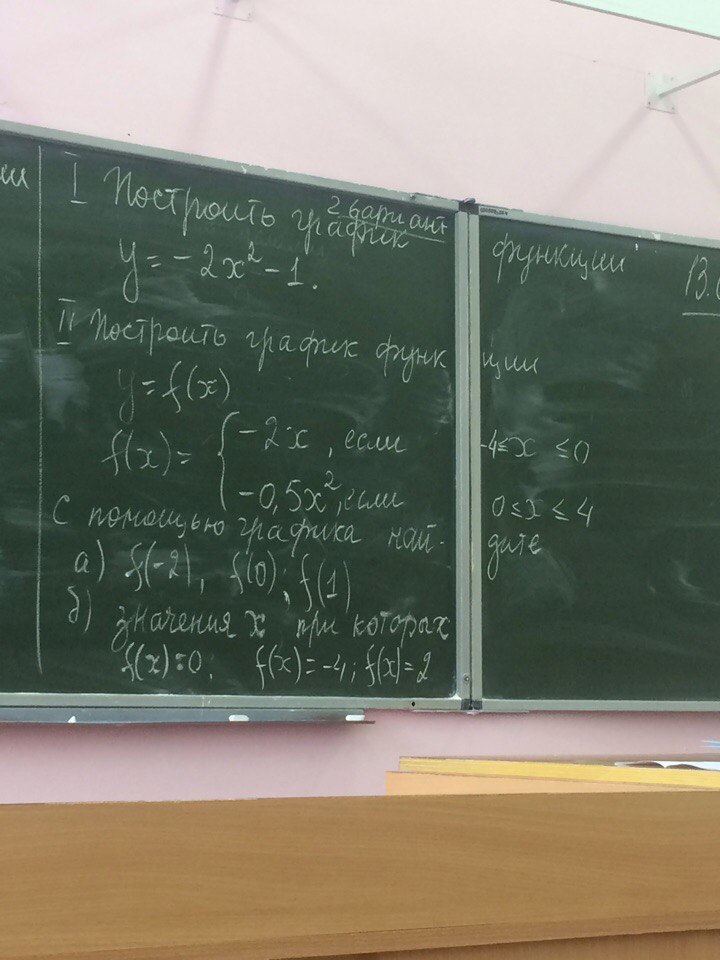 ии
2 вариант
I Построить график функции
y = -2x² - 1.
II Построить график функции
y = f(x)
f(x) = { -2x, если -4≤x ≤0
-0,5x², если 0≤x≤4
С помощью графика найдите
а) f(-2), f(0); f(1)
б) значения x при которых
f(x)=0; f(x)=-4; f(x)=2